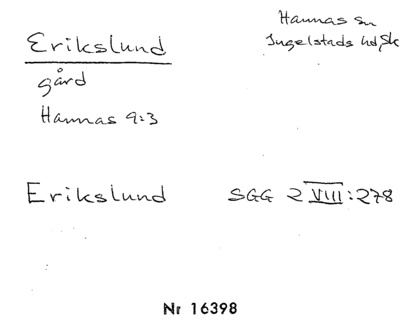 Erikslund
Hannas sn
Ingelstads hd, Sk
gård
Hannas 9:3
Erikslund SGG 2 VIII:278
Nr 16398